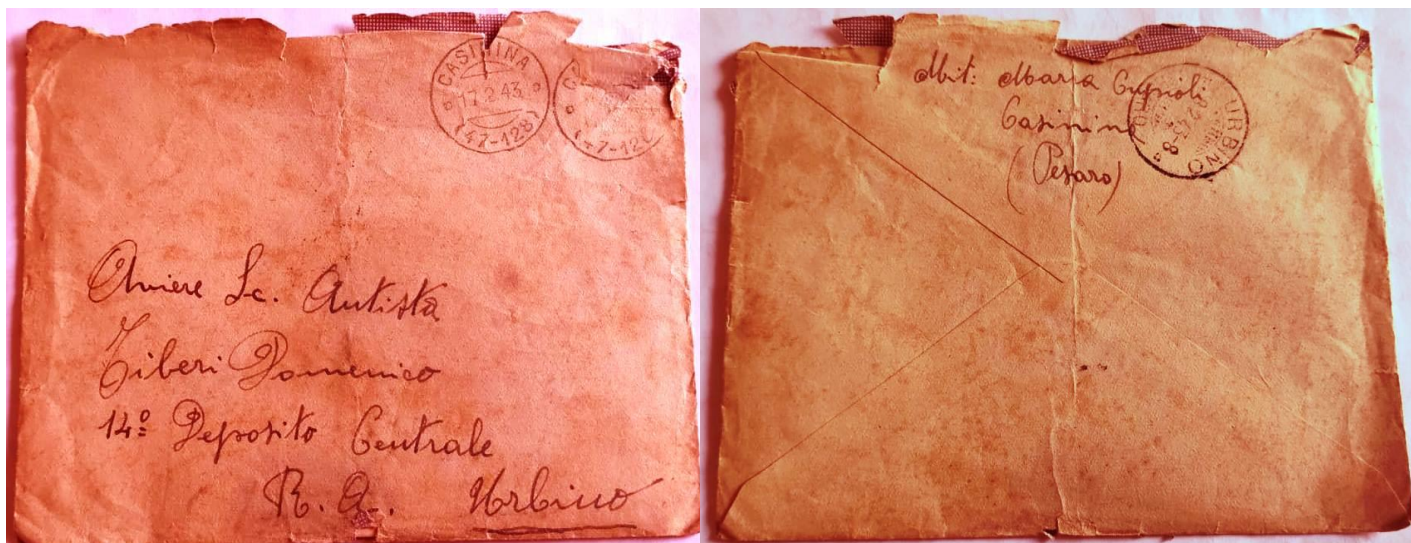 CASININA
17.2.43
(47-128)
Aviere Sc. Autista
Tiberi Domenico
14º Deposito Centrale
R. A. Urbino
Mit: Maria Cugnoli
Casinina
(Pesaro)
URBINO